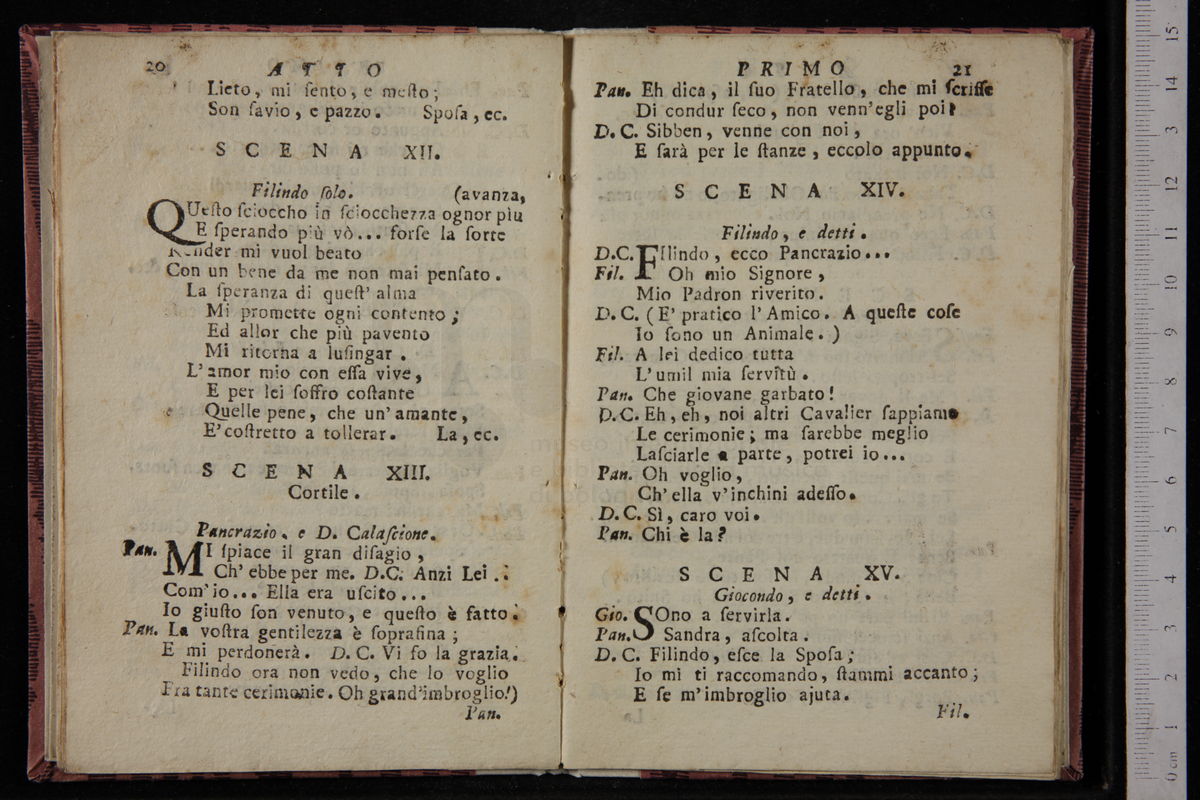 20 ATTO
Lieto, mi ſento, e meſto;
Son ſavio, e pazzo. Spoſa, ec.
SCENA XII.
Filindo ſolo. (avanza,
QUeſto ſcioccho in ſciocchezza ognor piu
E ſperando più vò... forſe la ſorte
Render mi vuol beato
Con un bene da me non mai penſato.
La ſperanza di queſt' alma
Mi promette ogni contento;
Ed allor che più pavento
Mi ritorna a luſingar.
L'amor mio con eſſa vive,
E per lei ſoffro coſtante
Quelle pene, che un'amante,
E'coſtretto a tollerar. La, ec.
SCENA XIII.
Cortile.
Pancrazio, e D. Calaſcione.
Pan. MI ſpiace il gran diſagio,
Ch'ebbe per me. D.C. Anzi Lei..
Com'io... Ella era uſcito...
Io giuſto ſon venuto, e queſto è fatto.
Pan. La voſtra gentilezza è ſoprafina;
E mi perdonerà. D. C. Vi fo la grazia.
Filindo ora non vedo, che lo voglio
Fra tante cerimonie. Oh grand'imbroglio!)
Pan.
PRIMO 21
Pan. Eh dica, il ſuo Fratello, che mi ſcriſſe
Di condur ſeco, non venn'egli poi?
D. C. Sibben, venne con noi,
E ſarà per le ſtanze, eccolo appunto.
SCENA XIV.
Filindo, e detti.
D.C. FIlindo, ecco Pancrazio...
Fil. Oh mio Signore,
Mio Padron riverito.
D. C. (E' pratico l'Amico. A queſte coſe
Io ſono un Animale.)
Fil. A lei dedico tutta
L'umil mia ſervitù.
Pan. Che giovane garbato!
D.C. Eh, eh, noi altri Cavalier ſappiamo
Le cerimonie; ma ſarebbe meglio
Laſciarle a parte, potrei io...
Pan. Oh voglio,
Ch'ella v'inchini adeſſo.
D. C. Sì, caro voi.
Pan. Chi è la?
SCENA XV.
Giocondo, e detti.
Gio. SOno a ſervirla.
Pan. Sandra, aſcolta.
D. C. Filindo, eſce la Spoſa;
Io mi ti raccomando, ſtammi accanto;
E ſe m'imbroglio ajuta.
Fil.
15
14
13
12
11
10
9
8
7
6
5
4
3
2
1
0 cm